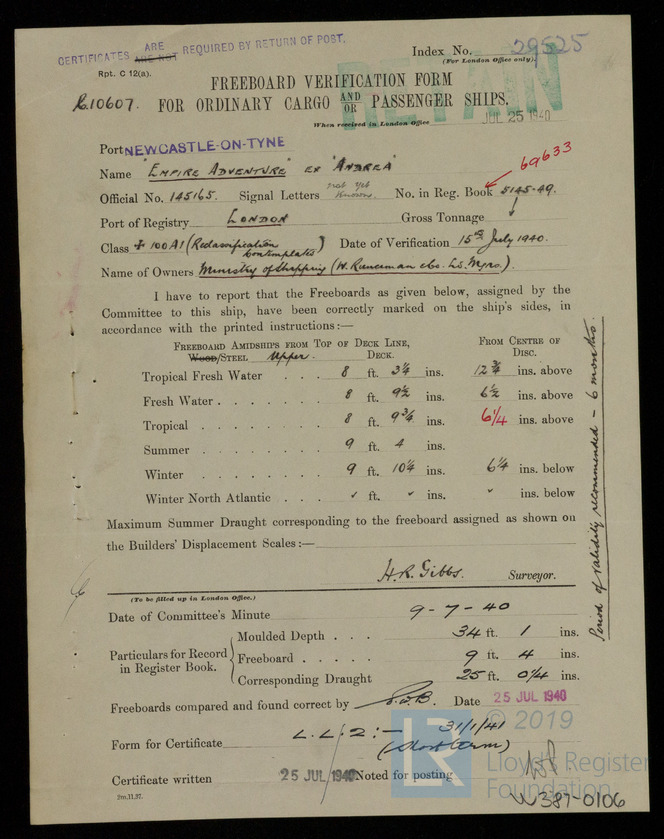 CERTIFICATES ARE ARE NOT REQUIRED BY RETURN OF POST.
Index No. 29525
(For London Office only)
Rpt. C 12(a).
RETAIN
C.10607.
FREEBOARD VERIFICATION FORM
FOR ORDINARY CARGO AND OR PASSENGER SHIPS.
When received in London Office JUL 25 1940
Port NEWCASTLE-ON-TYNE
Name "EMPIRE ADVENTURE" ex "ANDREA"
69633
Official No. 145165. Signal Letters not yet known. No. in Reg. Book 5145.49.
Port of Registry LONDON Gross Tonnage
Class + 100A1 (Reclassification contemplated) Date of Verification 15th July 1940.
Name of Owners Ministry of Shipping (W. Runciman & Co. Ld. Mgrs.).
I have to report that the Freeboards as given below, assigned by the
Committee to this ship, have been correctly marked on the ship's sides, in
accordance with the printed instructions:—
FREEBOARD AMIDSHIPS FROM TOP OF DECK LINE, FROM CENTRE OF
WOOD/STEEL Upper. DECK. DISC.
Tropical Fresh Water . . . 8 ft. 3¼ ins. 12¾ ins. above
Fresh Water . . . . . . . 8 ft. 9½ ins. 6½ ins. above
Tropical . . . . . . . . 8 ft. 9¾ ins. 6¼ ins. above
Summer . . . . . . . . 9 ft. 4 ins.
Winter . . . . . . . . 9 ft. 10¼ ins. 6¼ ins. below
Winter North Atlantic . . . ft. ins. ins. below
Maximum Summer Draught corresponding to the freeboard assigned as shown on
the Builders' Displacement Scales:—
H.R. Gibbs. Surveyor.
Period of validity recommended - 6 months.
(To be filled up in London Office.)
Date of Committee's Minute 9-7-40
Particulars for Record in Register Book.
Moulded Depth . . . 34 ft. 1 ins.
Freeboard . . . . . 9 ft. 4 ins.
Corresponding Draught 25 ft. 0¼ ins.
Freeboards compared and found correct by Date 25 JUL 1940
Form for Certificate L.L.2:- 31/1/41
(Short term)
Certificate written 25 JUL 1940 Noted for posting
2m,11,37.
W387-0106
LR
© 2019
Lloyd's Register
Foundation